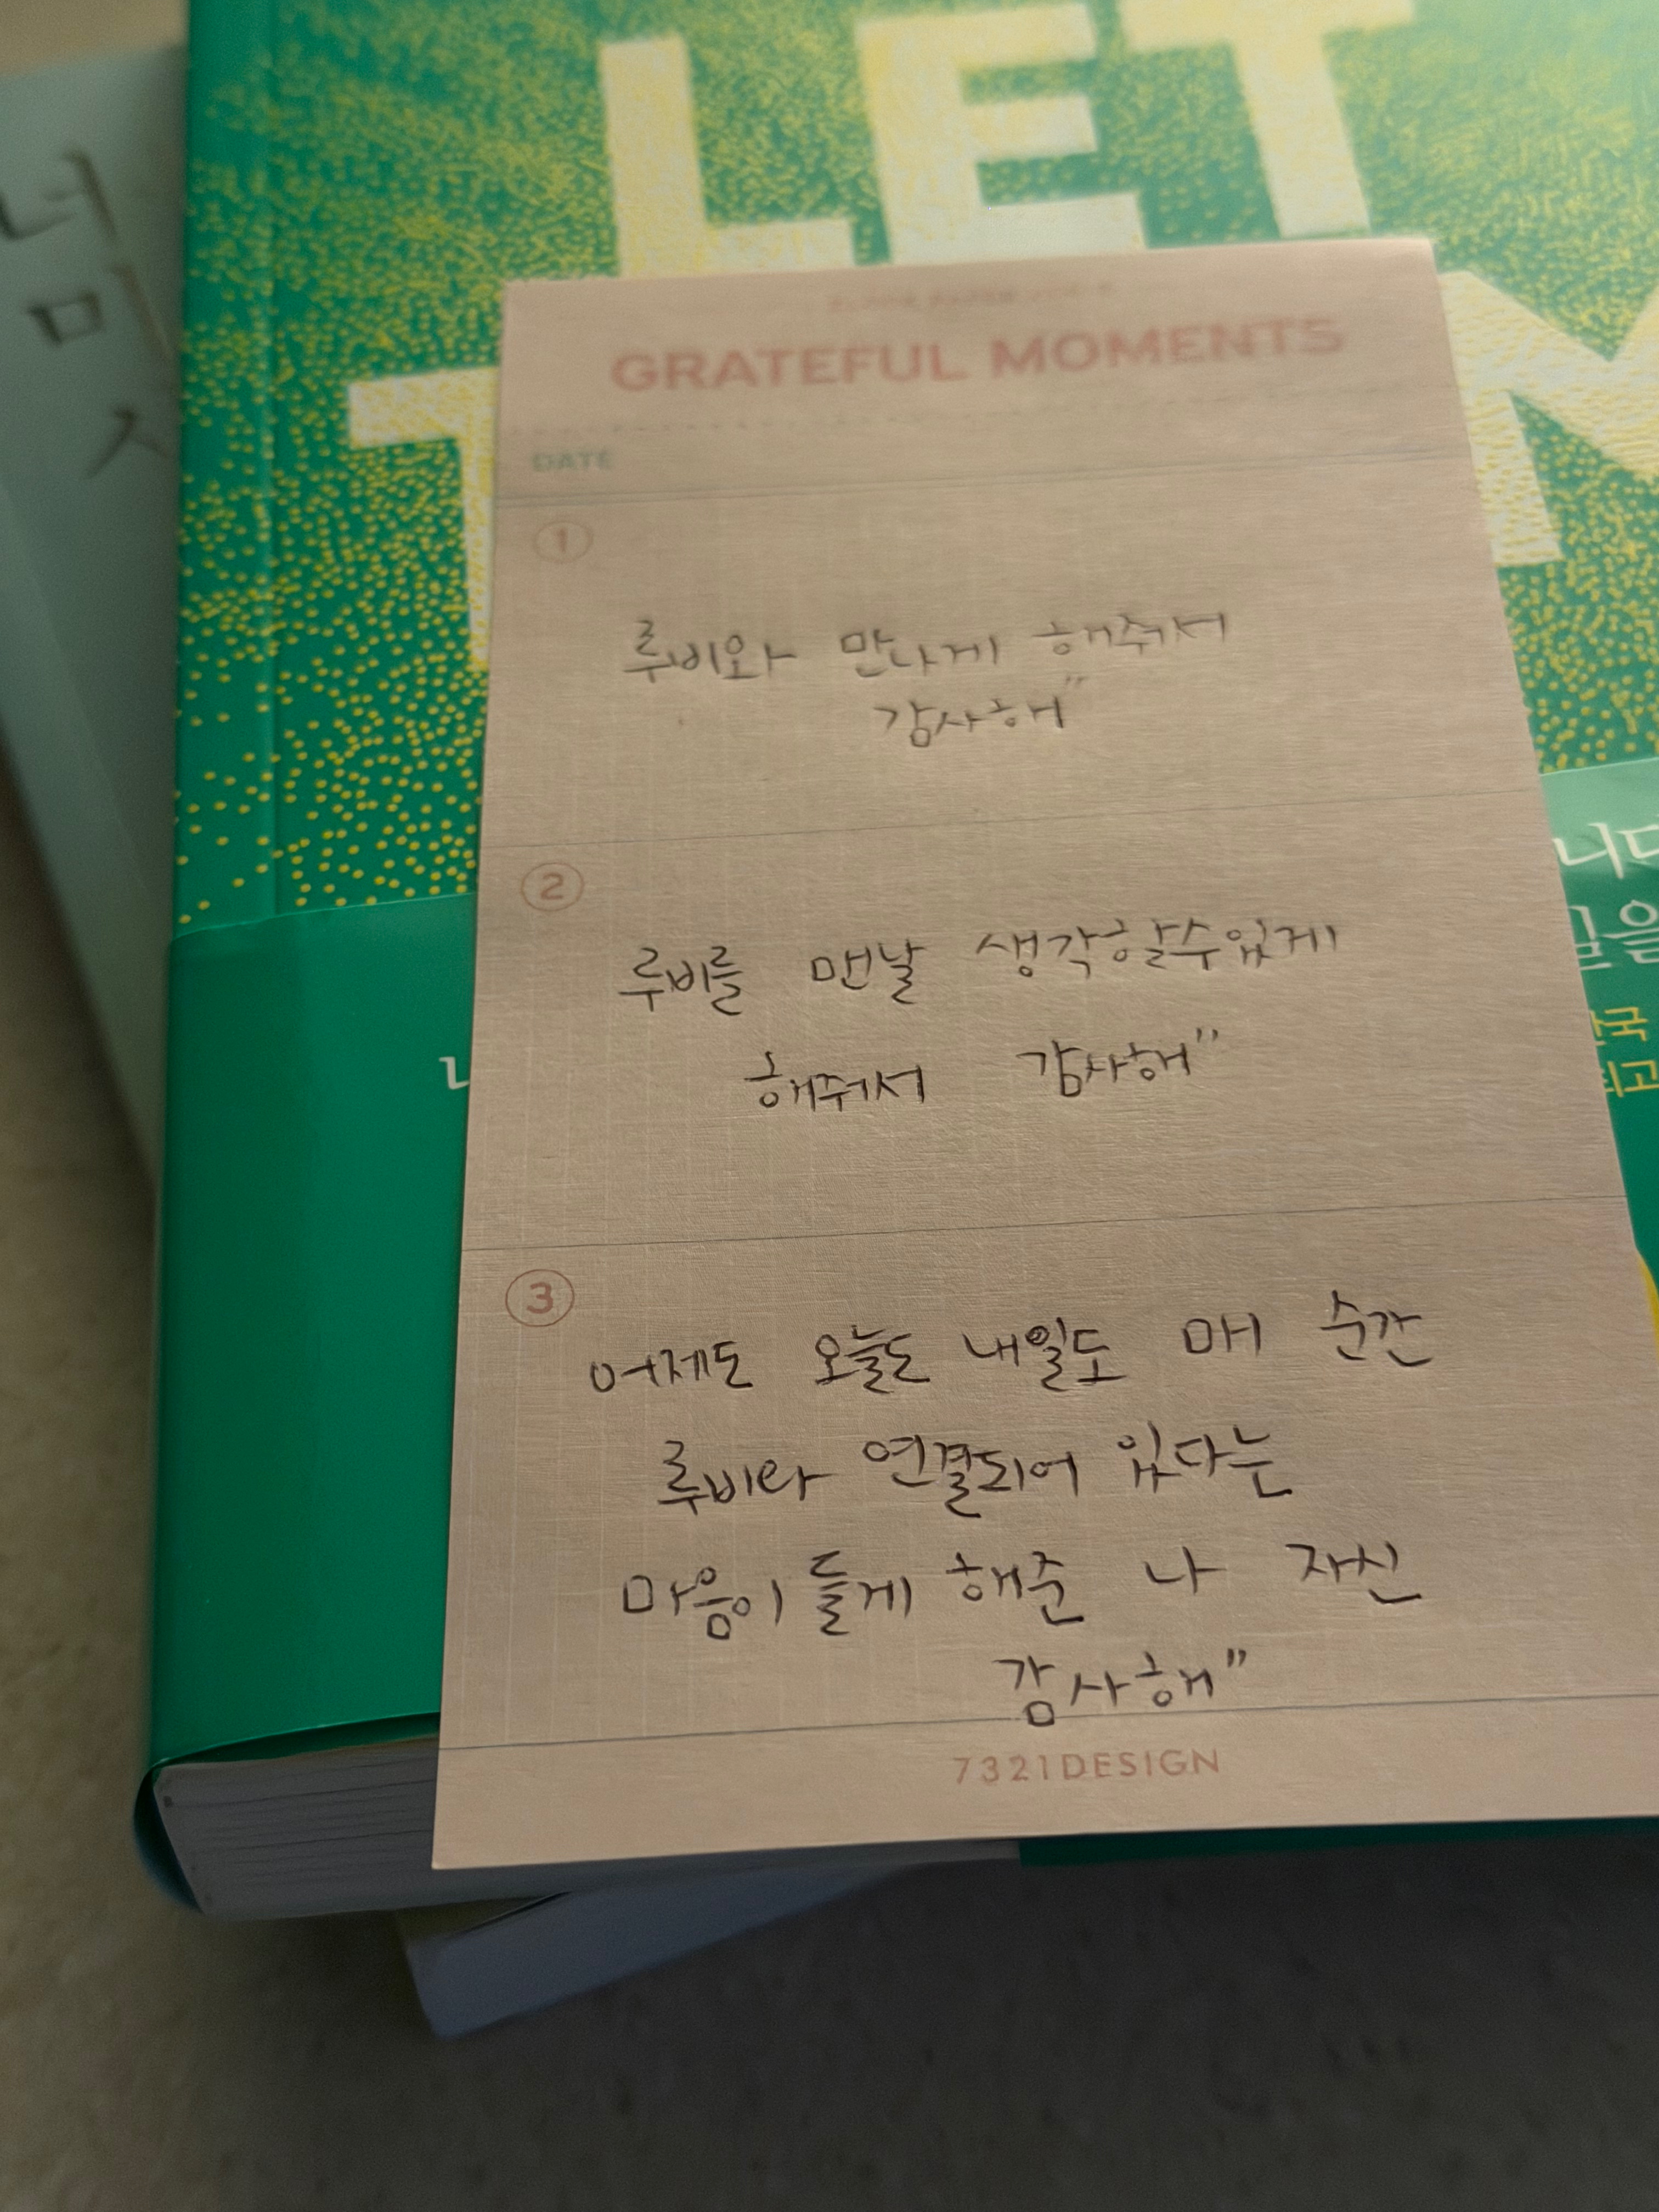 LET
GRATEFUL MOMENTS
DATE
1
루비와 만나게 해줘서
감사해"
2
루비를 맨날 생각할수있게
해줘서 감사해"
3
어제도 오늘도 내일도 매 순간
루비랑 연결되어 있다는
마음이 들게 해준 나 자신
감사해"
7321DESIGN
니다
을
국
최고